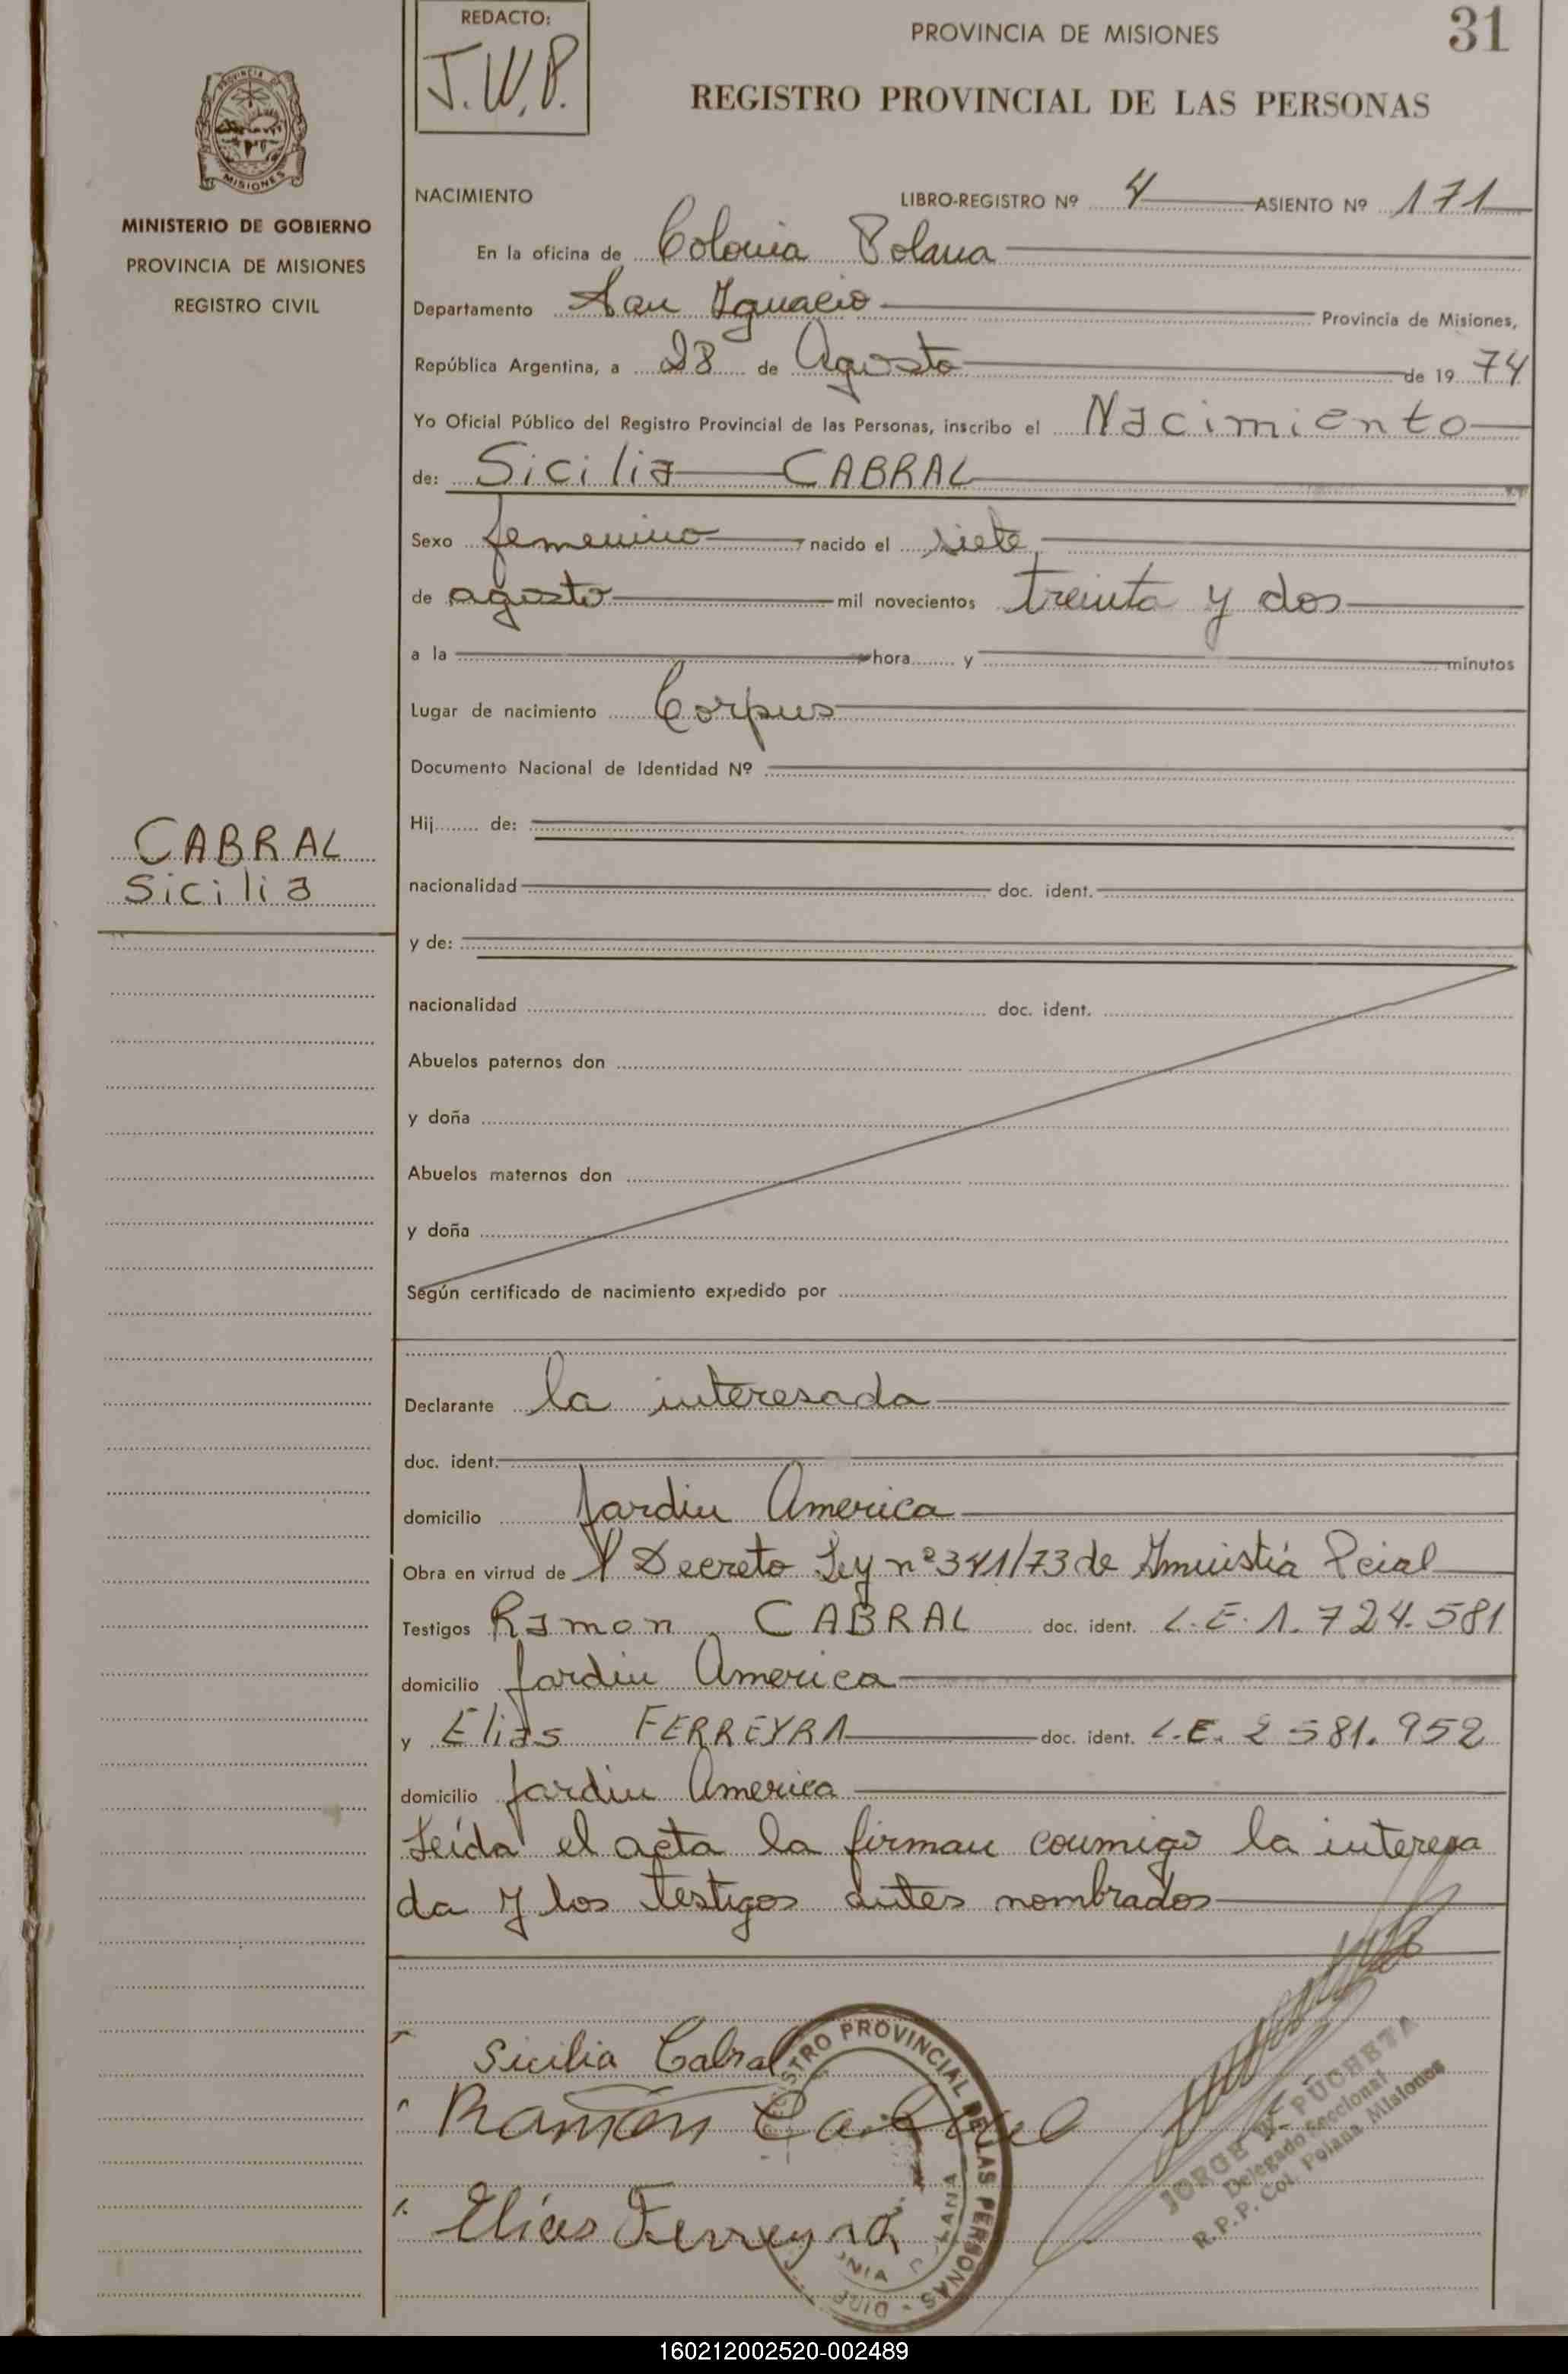 REDACTO:
J.W.P.
PROVINCIA DE MISIONES
31
REGISTRO PROVINCIAL DE LAS PERSONAS
PROVINCIA DE
MISIONES
MINISTERIO DE GOBIERNO
PROVINCIA DE MISIONES
REGISTRO CIVIL
NACIMIENTO LIBRO-REGISTRO Nº 4 ASIENTO Nº 171
En la oficina de Colonia Polana
Departamento San Ignacio Provincia de Misiones,
República Argentina, a 28 de Agosto de 19 74
Yo Oficial Público del Registro Provincial de las Personas, inscribo el Nacimiento
de: Sicilia CABRAL
Sexo femenino nacido el siete
de agosto mil novecientos treinta y dos
a la hora y minutos
Lugar de nacimiento Corpus
Documento Nacional de Identidad Nº
Hij de:
CABRAL
Sicilia
nacionalidad doc. ident.
y de:
nacionalidad doc. ident.
Abuelos paternos don
y doña
Abuelos maternos don
y doña
Según certificado de nacimiento expedido por
Declarante la interesada
doc. ident.
domicilio Jardin America
Obra en virtud de Decreto Ley nº 341/73 de Amnistía Pcial
Testigos Ramon CABRAL doc. ident. L.E. 1.724.581
domicilio Jardin America
y Elias FERREYRA doc. ident. L.E. 2 581.952
domicilio Jardin America
Leída el acta la firman conmigo la interesa
da y los testigos antes nombrados
Sicilia Cabral
Ramón Cabral
Elias Ferreyra
REGISTRO PROVINCIAL DE LAS PERSONAS
JORGE W. PUCHETA
Delegado Seccional
R.P.P. Col. Polana Misiones
160212002520-002489